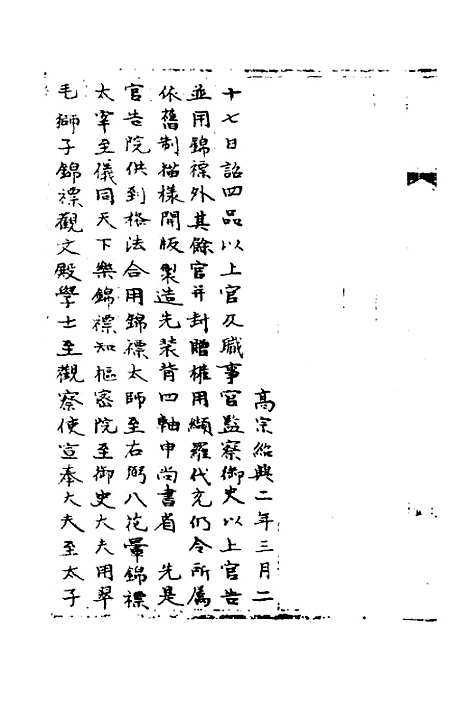 高宗紹興二年三月二
十七日詔四品以上官及職事官監察御史以上官告
並用錦褾外其餘官并封贈權用纈羅代充仍令所属
依舊制描様開版製造先装背四軸申尚書省　先是
官告院供到格法合用錦褾太師至右弼八花暈錦褾
太宰至儀同天下樂錦褾知樞密院至御史大夫用翠
毛獅子錦褾觀文殿學士至觀察使宣奉大夫至太子